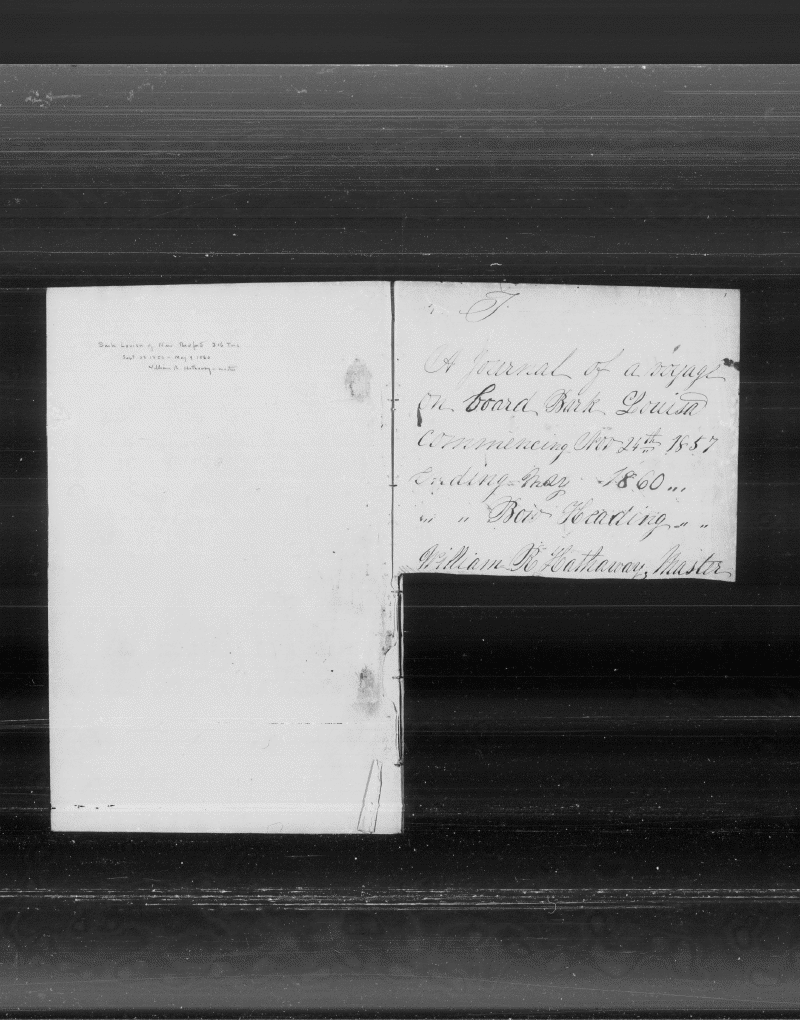 Bark Louisa of New Bedford 316 Tons
1857 - May 9, 1860
William R. Hathaway - master
T
A Journal of a voyage
on board Bark Louisa
Commencing Nov 24th 1857
Ending May 1860 „
„ „ Bow Heading „ „
William R Hathaway, Master